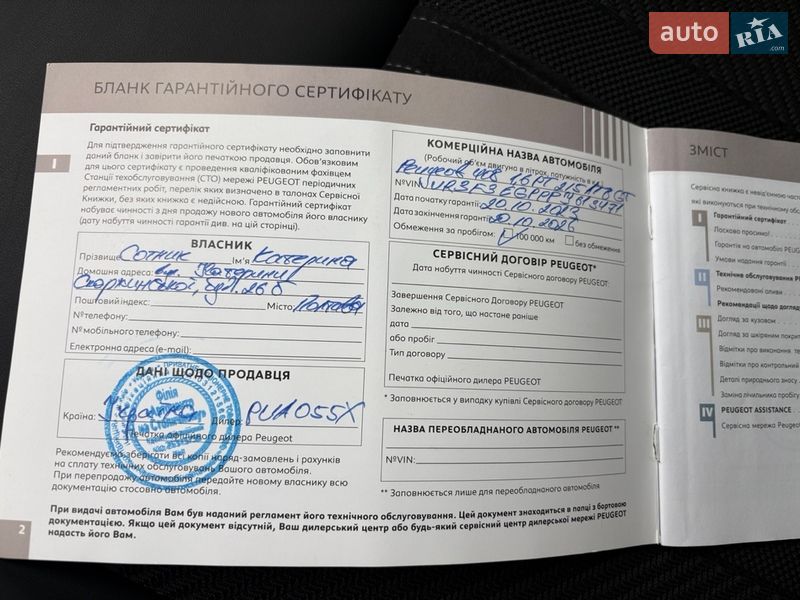 auto RIA .com
БЛАНК ГАРАНТІЙНОГО СЕРТИФІКАТУ
I
Гарантійний сертифікат
Для підтвердження гарантійного сертифікату необхідно заповнити
даний бланк і завірити його печаткою продавця. Обов'язковим
для цього сертифікату є проведення кваліфікованим фахівцем
Станції техобслуговування (СТО) мережі PEUGEOT періодичних
регламентних робіт, перелік яких визначено в талонах Сервісної
Книжки, без яких книжка є недійсною. Гарантійний сертифікат
набуває чинності з дня продажу нового автомобіля його власнику
(дату набуття чинності гарантії див. на цій сторінці).
ВЛАСНИК
Прізвище: Сотник Ім'я: Катерина
Домашня адреса: вул.
буд. 26 б
Поштовий індекс: Місто: Полтава
№телефону:
№мобільного телефону:
Електронна адреса (e-mail):
ДАНІ ЩОДО ПРОДАВЦЯ
Країна: Україна Дилер: PUA055X
Печатка офіційного дилера Peugeot
Філія
Рекомендуємо зберігати всі копії наряд-замовлень і рахунків
на сплату технічних обслуговувань Вашого автомобіля.
При перепродажу автомобіля передайте новому власнику всю
документацію стосовно автомобіля.
КОМЕРЦІЙНА НАЗВА АВТОМОБІЛЯ
(Робочий об'єм двигуна в літрах, потужність в к.с.)
Peugeot 408 1.6
№VIN:
Дата початку гарантії: 20.10.2023
Дата закінчення гарантії: 20.10.2026
Обмеження за пробігом: 100 000 км без обмеження
СЕРВІСНИЙ ДОГОВІР PEUGEOT*
Дата набуття чинності Сервісного Договору PEUGEOT:
Завершення Сервісного Договору PEUGEOT
Залежно від того, що настане раніше
дата
або пробіг
Тип договору
Печатка офіційного дилера PEUGEOT
* Заповнюється у випадку купівлі Сервісного договору PEUGEOT
НАЗВА ПЕРЕОБЛАДНАНОГО АВТОМОБІЛЯ PEUGEOT **
№VIN:
** Заповнюється лише для переобладнаного автомобіля
При видачі автомобіля Вам був наданий регламент його технічного обслуговування. Цей документ знаходиться в папці з бортовою
документацією. Якщо цей документ відсутній, Ваш дилерський центр або будь-який сервісний центр дилерської мережі PEUGEOT
надасть його Вам.
2
ЗМІСТ
Сервісна книжка є невід'ємною
які виконуються при технічному
I Гарантійний сертифікат
Ласкаво просимо!
Гарантія на автомобілі
Умови надання гарантії
II Технічне обслуговування
Рекомендовані оливи
Рекомендації щодо догляд
III Догляд за кузовом
Догляд за шкіряним
Відмітки про виконання
Відмітки про контрольний
Деталі природного зносу
Заміна лічильника пробігу
IV PEUGEOT ASSISTANCE
Сервісна мережа Peugeot